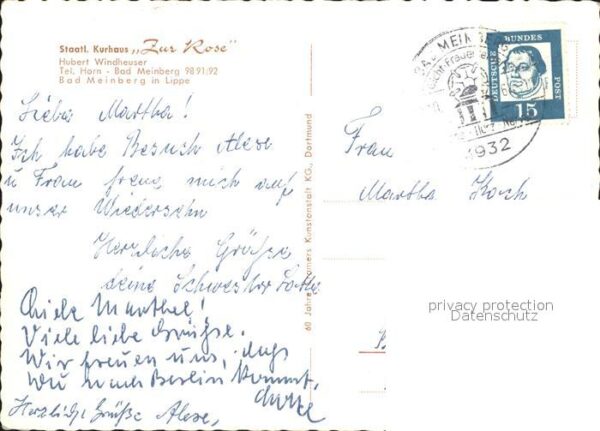 Staatl. Kurhaus „Zur Rose"
Hubert Windheuser
Tel. Horn - Bad Meinberg 98 91/92
Bad Meinberg in Lippe
Liebe Martha!
Ich habe Besuch Alese
u Frau freue mich auf
unser Wiedersehn
Herzliche Grüße
deine Schwester
Viele liebe Grüße.
Wir freuen uns, daß
nach Berlin kommt,
Herzliche Grüße Alese,
60 Jahre Kunstanstalt KG., Dortmund
BAD MEINBERG
4932
DEUTSCHE BUNDESPOST
15
Frau
Martha Koch
privacy protection
Datenschutz